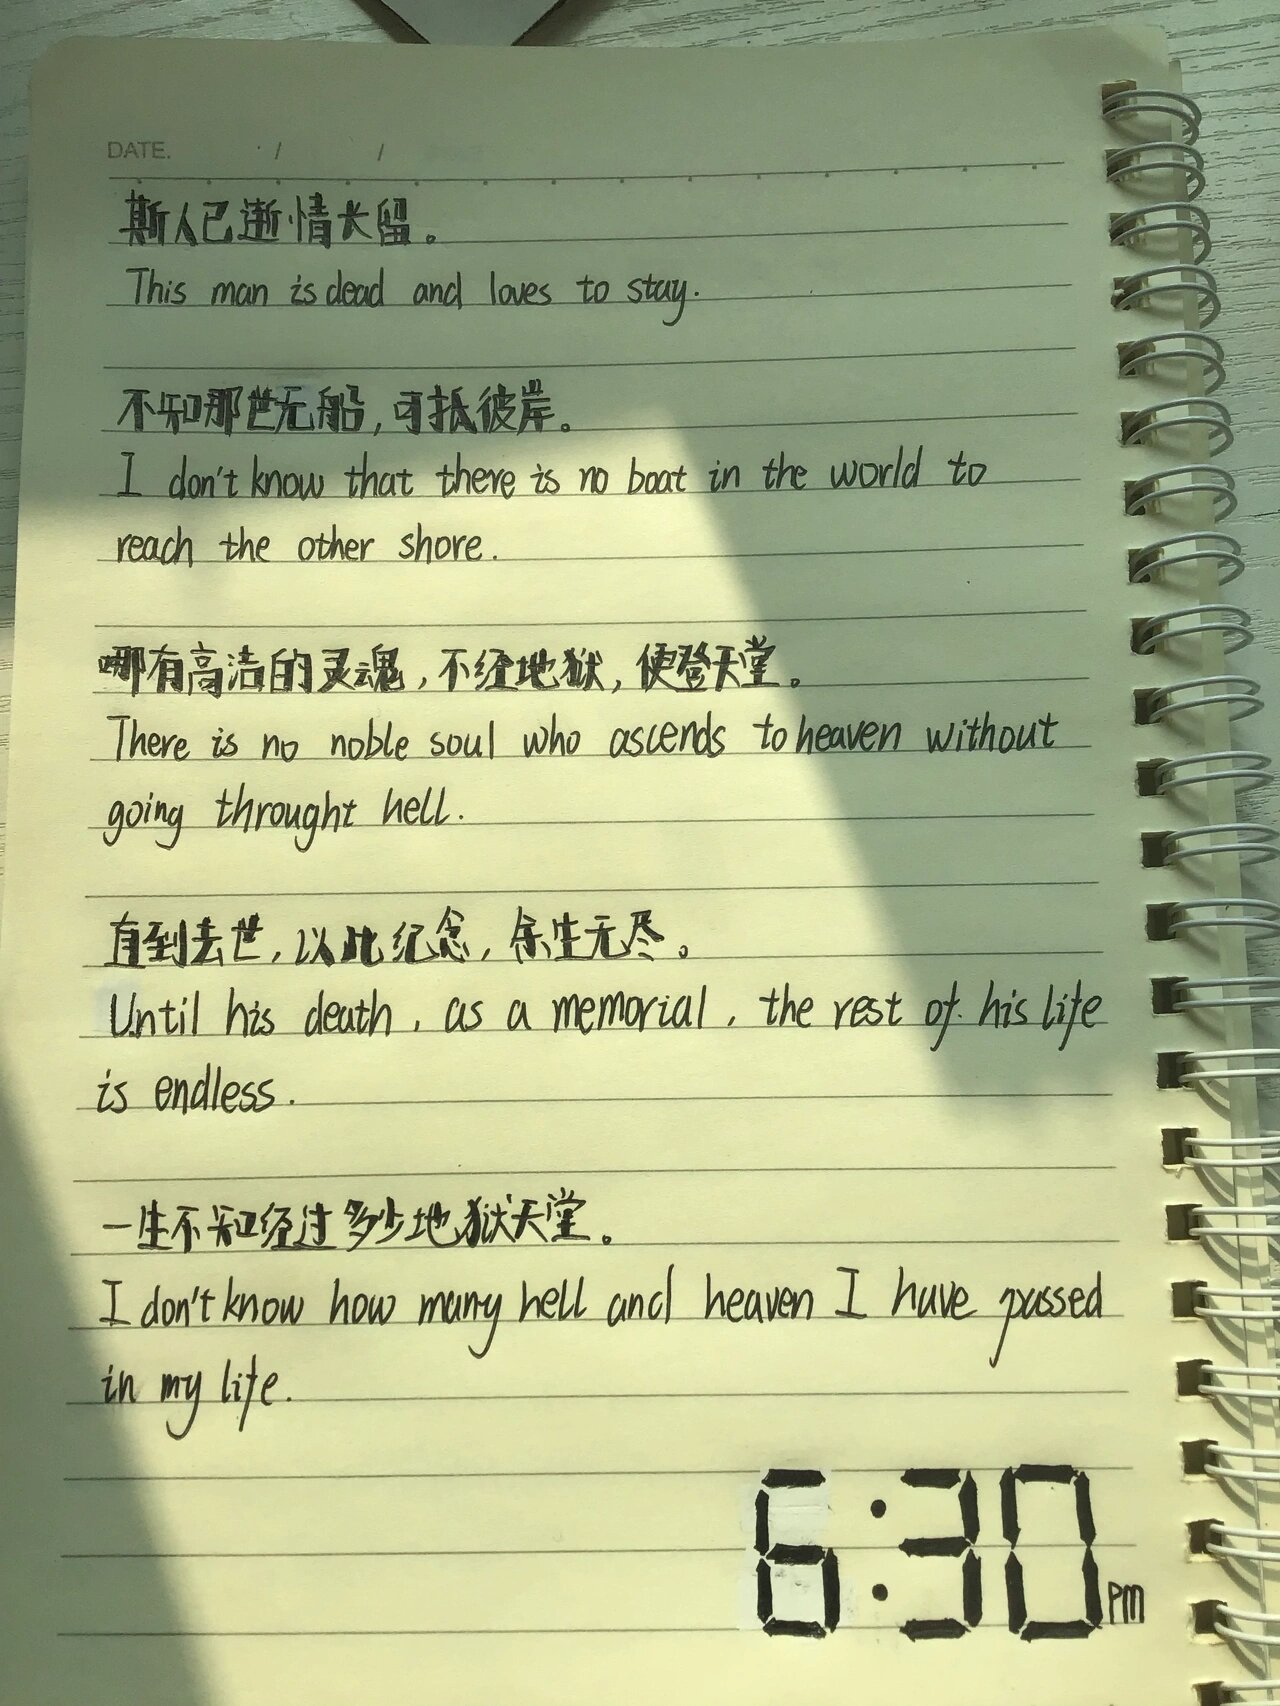 DATE. / /
斯人已逝情长留。
This man is dead and loves to stay.
不知那世无船,可抵彼岸。
I don't know that there is no boat in the world to
reach the other shore.
哪有高洁的灵魂,不经地狱,便登天堂。
There is no noble soul who ascends to heaven without
going throught hell.
直到去世,以此纪念,余生无尽。
Until his death, as a memorial, the rest of his life
is endless.
一生不知经过多少地狱天堂。
I don't know how many hell and heaven I have passed
in my life.
6:30 PM